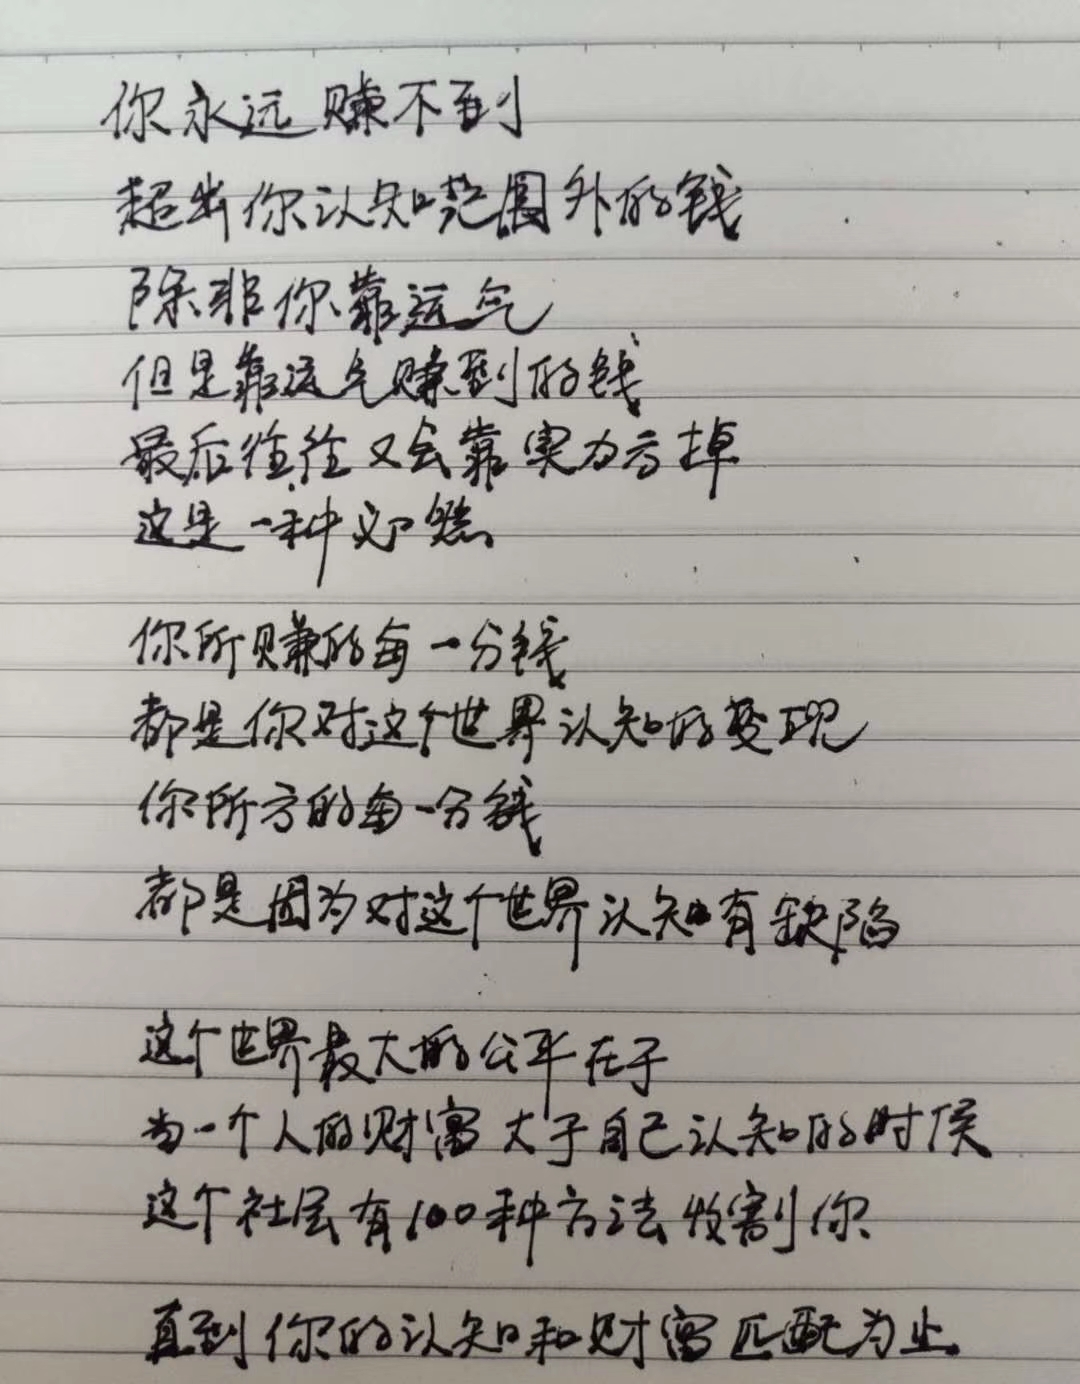 你永远赚不到
超出你认知范围外的钱
除非你靠运气
但是靠运气赚到的钱
最后往往又会靠实力亏掉
这是一种必然
你所赚的每一分钱
都是你对这个世界认知的变现
你所亏的每一分钱
都是因为对这个世界认知有缺陷
这个世界最大的公平在于
当一个人的财富大于自己认知的时候
这个社会有100种方法收割你
直到你的认知和财富匹配为止。